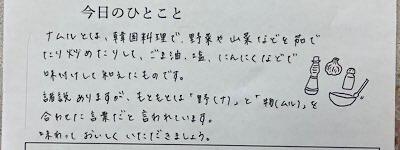 今日のひとこと
ナムルとは、韓国料理で、野菜や山菜などを茹で
たり炒めたりして、ごま油、塩、にんにくなどで
味付けして和えたものです。
諸説ありますが、もともとは「野(ナ)」と「物(ムル)」を
合わせた言葉だと言われています。
味わっておいしくいただきましょう。